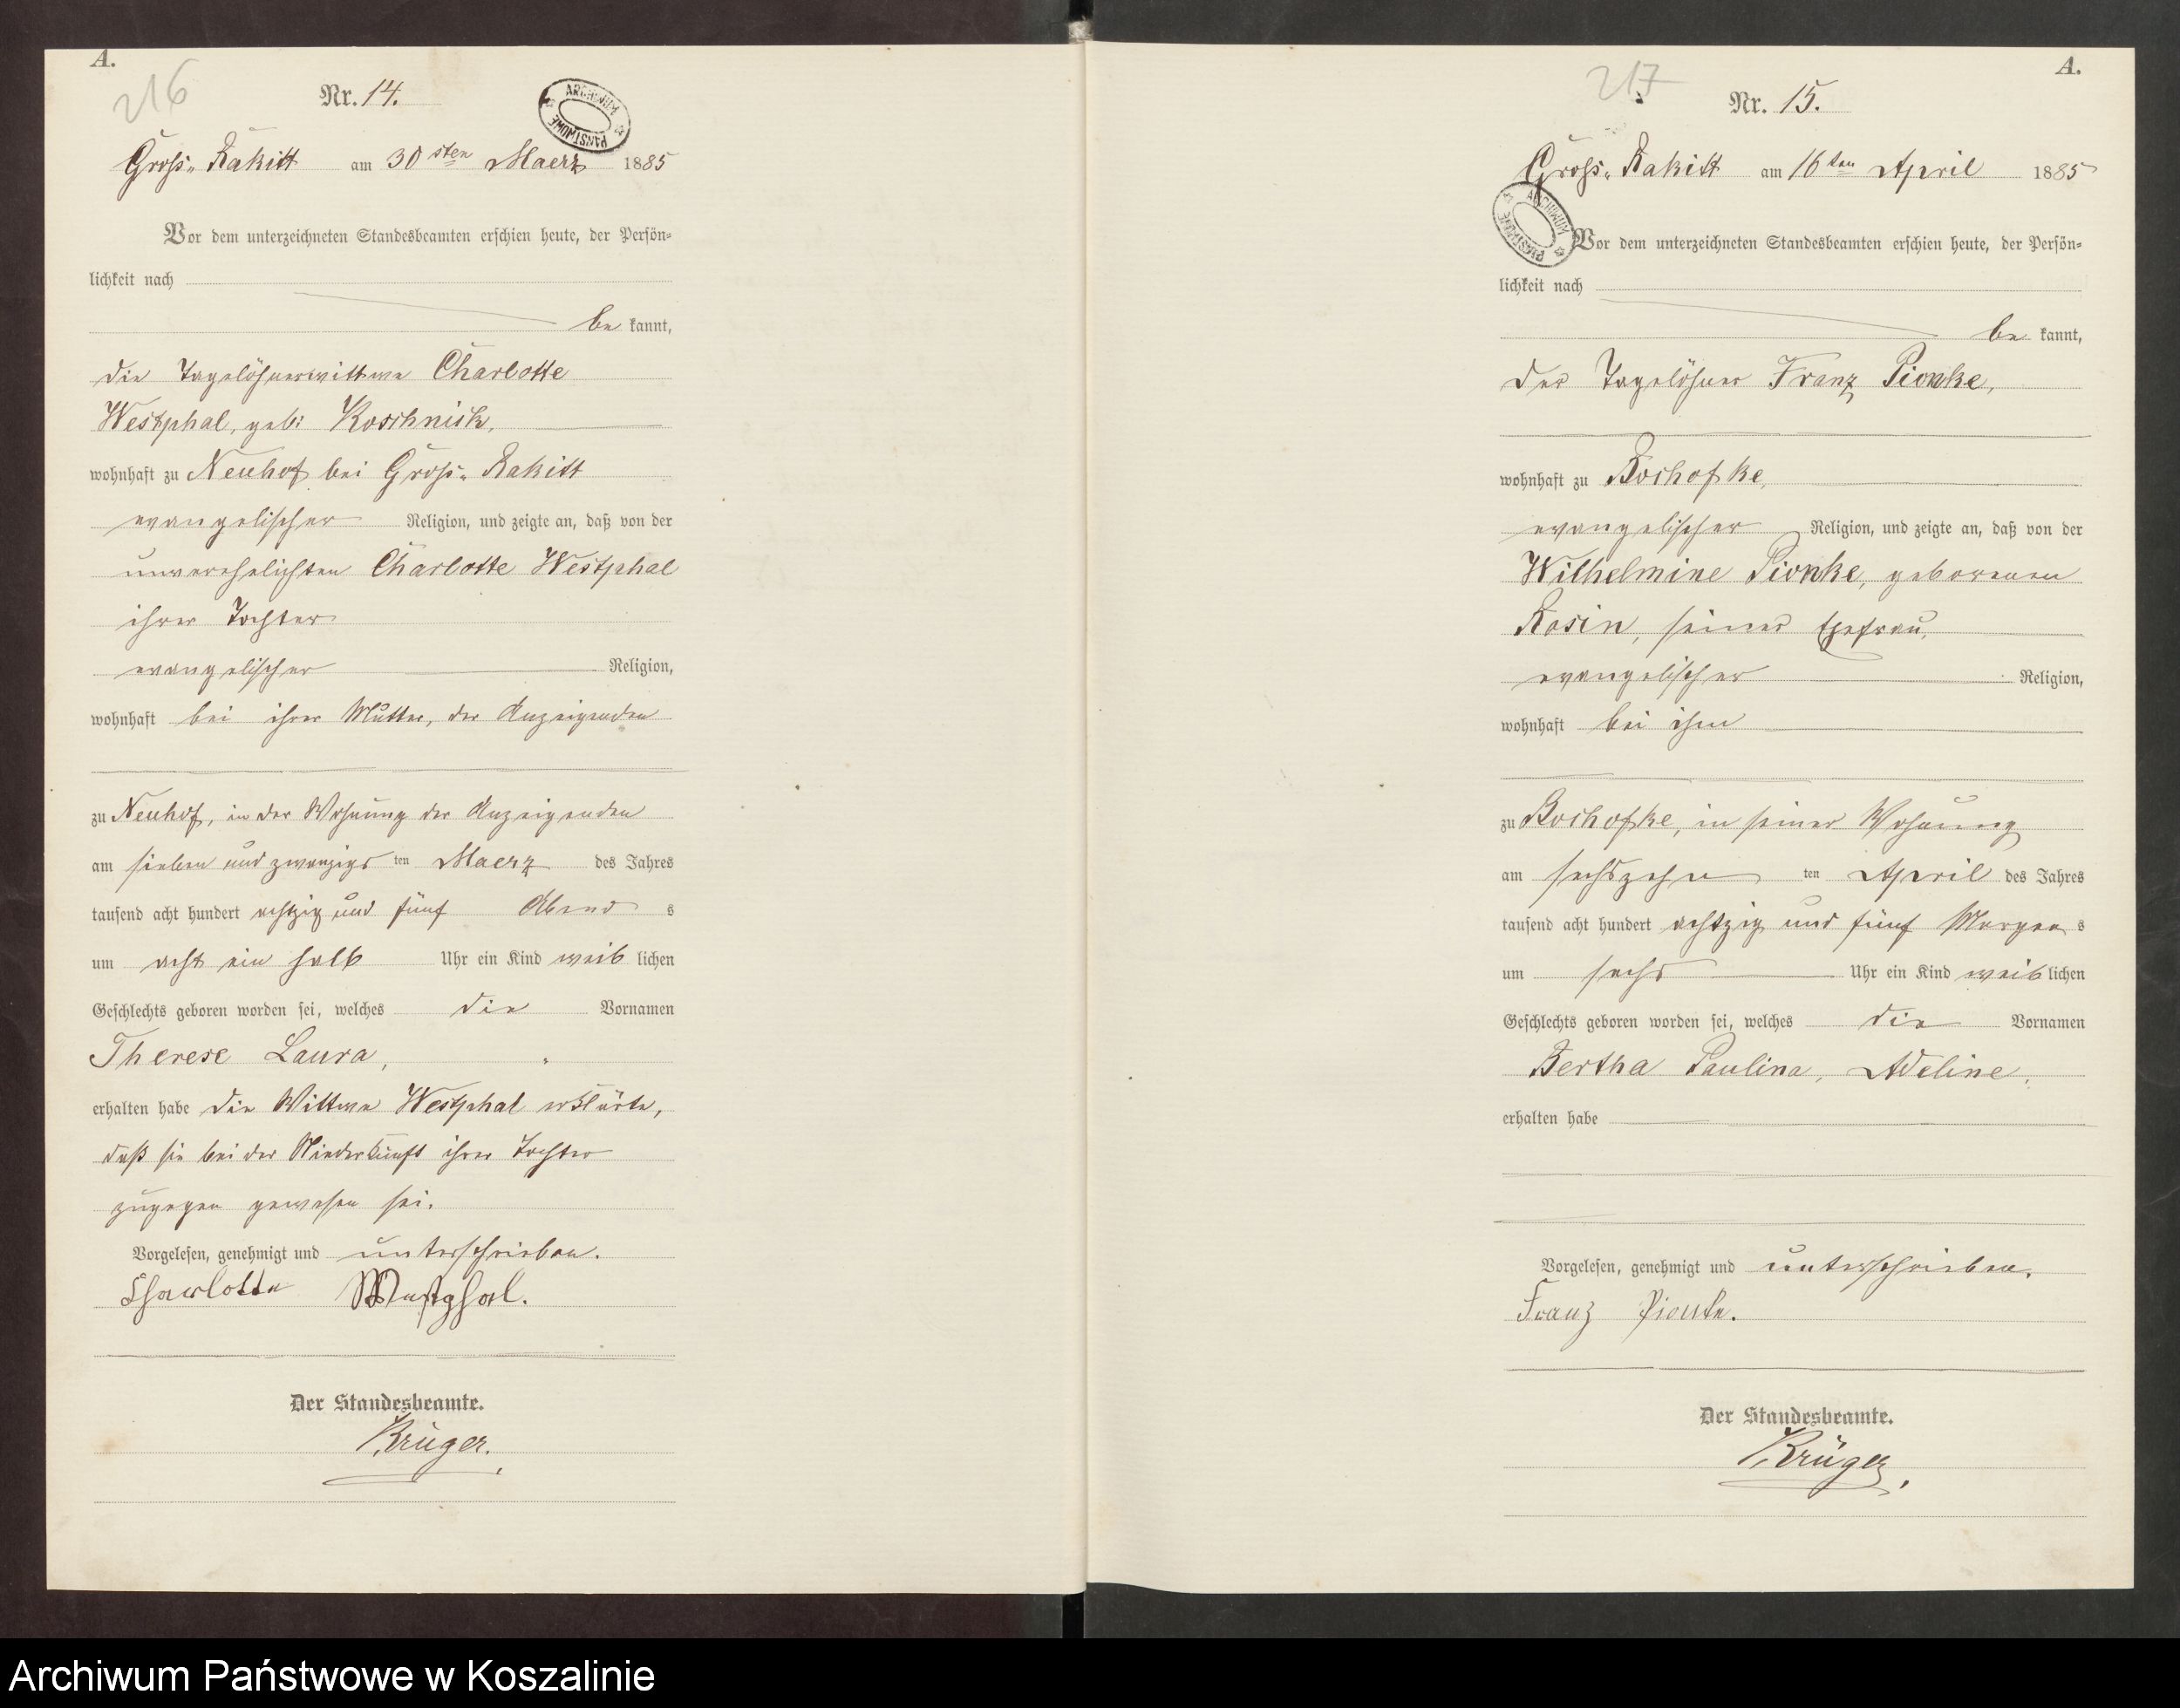 A.
216
Nr. 14.
ARCHIWUM PAŃSTWOWE
Gross-Rakitt am 30sten Maerz 1885
Vor dem unterzeichneten Standesbeamten erschien heute, der Persön-
lichkeit nach
be kannt,
die Tagelöhnerwittwe Charlotte
Westphal, geb: Koschnick,
wohnhaft zu Neuhof bei Gross-Rakitt
evangelischer Religion, und zeigte an, daß von der
unverehelichten Charlotte Westphal
ihrer Tochter
evangelischer Religion,
wohnhaft bei ihrer Mutter, der Anzeigenden
zu Neuhof, in der Wohnung der Anzeigenden
am sieben und zwanzigs ten Maerz des Jahres
tausend acht hundert achtzig und fünf Abend s
um acht ein halb Uhr ein Kind weib lichen
Geschlechts geboren worden sei, welches die Vornamen
Therese Laura,
erhalten habe die Wittwe Westphal erklärte,
daß sie bei der Niederkunft ihrer Tochter
zugegen gewesen sei.
Vorgelesen, genehmigt und unterschrieben.
Charlotte Westphal.
Der Standesbeamte.
Krüger.
A.
217
Nr. 15.
ARCHIWUM PAŃSTWOWE
Gross-Rakitt am 16ten April 1885
Vor dem unterzeichneten Standesbeamten erschien heute, der Persön-
lichkeit nach
be kannt,
der Tagelöhner Franz Pionke,
wohnhaft zu Bochofke,
evangelischer Religion, und zeigte an, daß von der
Wilhelmine Pionke, geborenen
Rosin, seiner Ehefrau,
evangelischer Religion,
wohnhaft bei ihm
zu Bochofke, in seiner Wohnung
am sechszehn ten April des Jahres
tausend acht hundert achtzig und fünf Morgen s
um sechs Uhr ein Kind weib lichen
Geschlechts geboren worden sei, welches die Vornamen
Bertha Paulina, Adeline,
erhalten habe
Vorgelesen, genehmigt und unterschrieben.
Franz Pionke.
Der Standesbeamte.
Krüger.
Archiwum Państwowe w Koszalinie